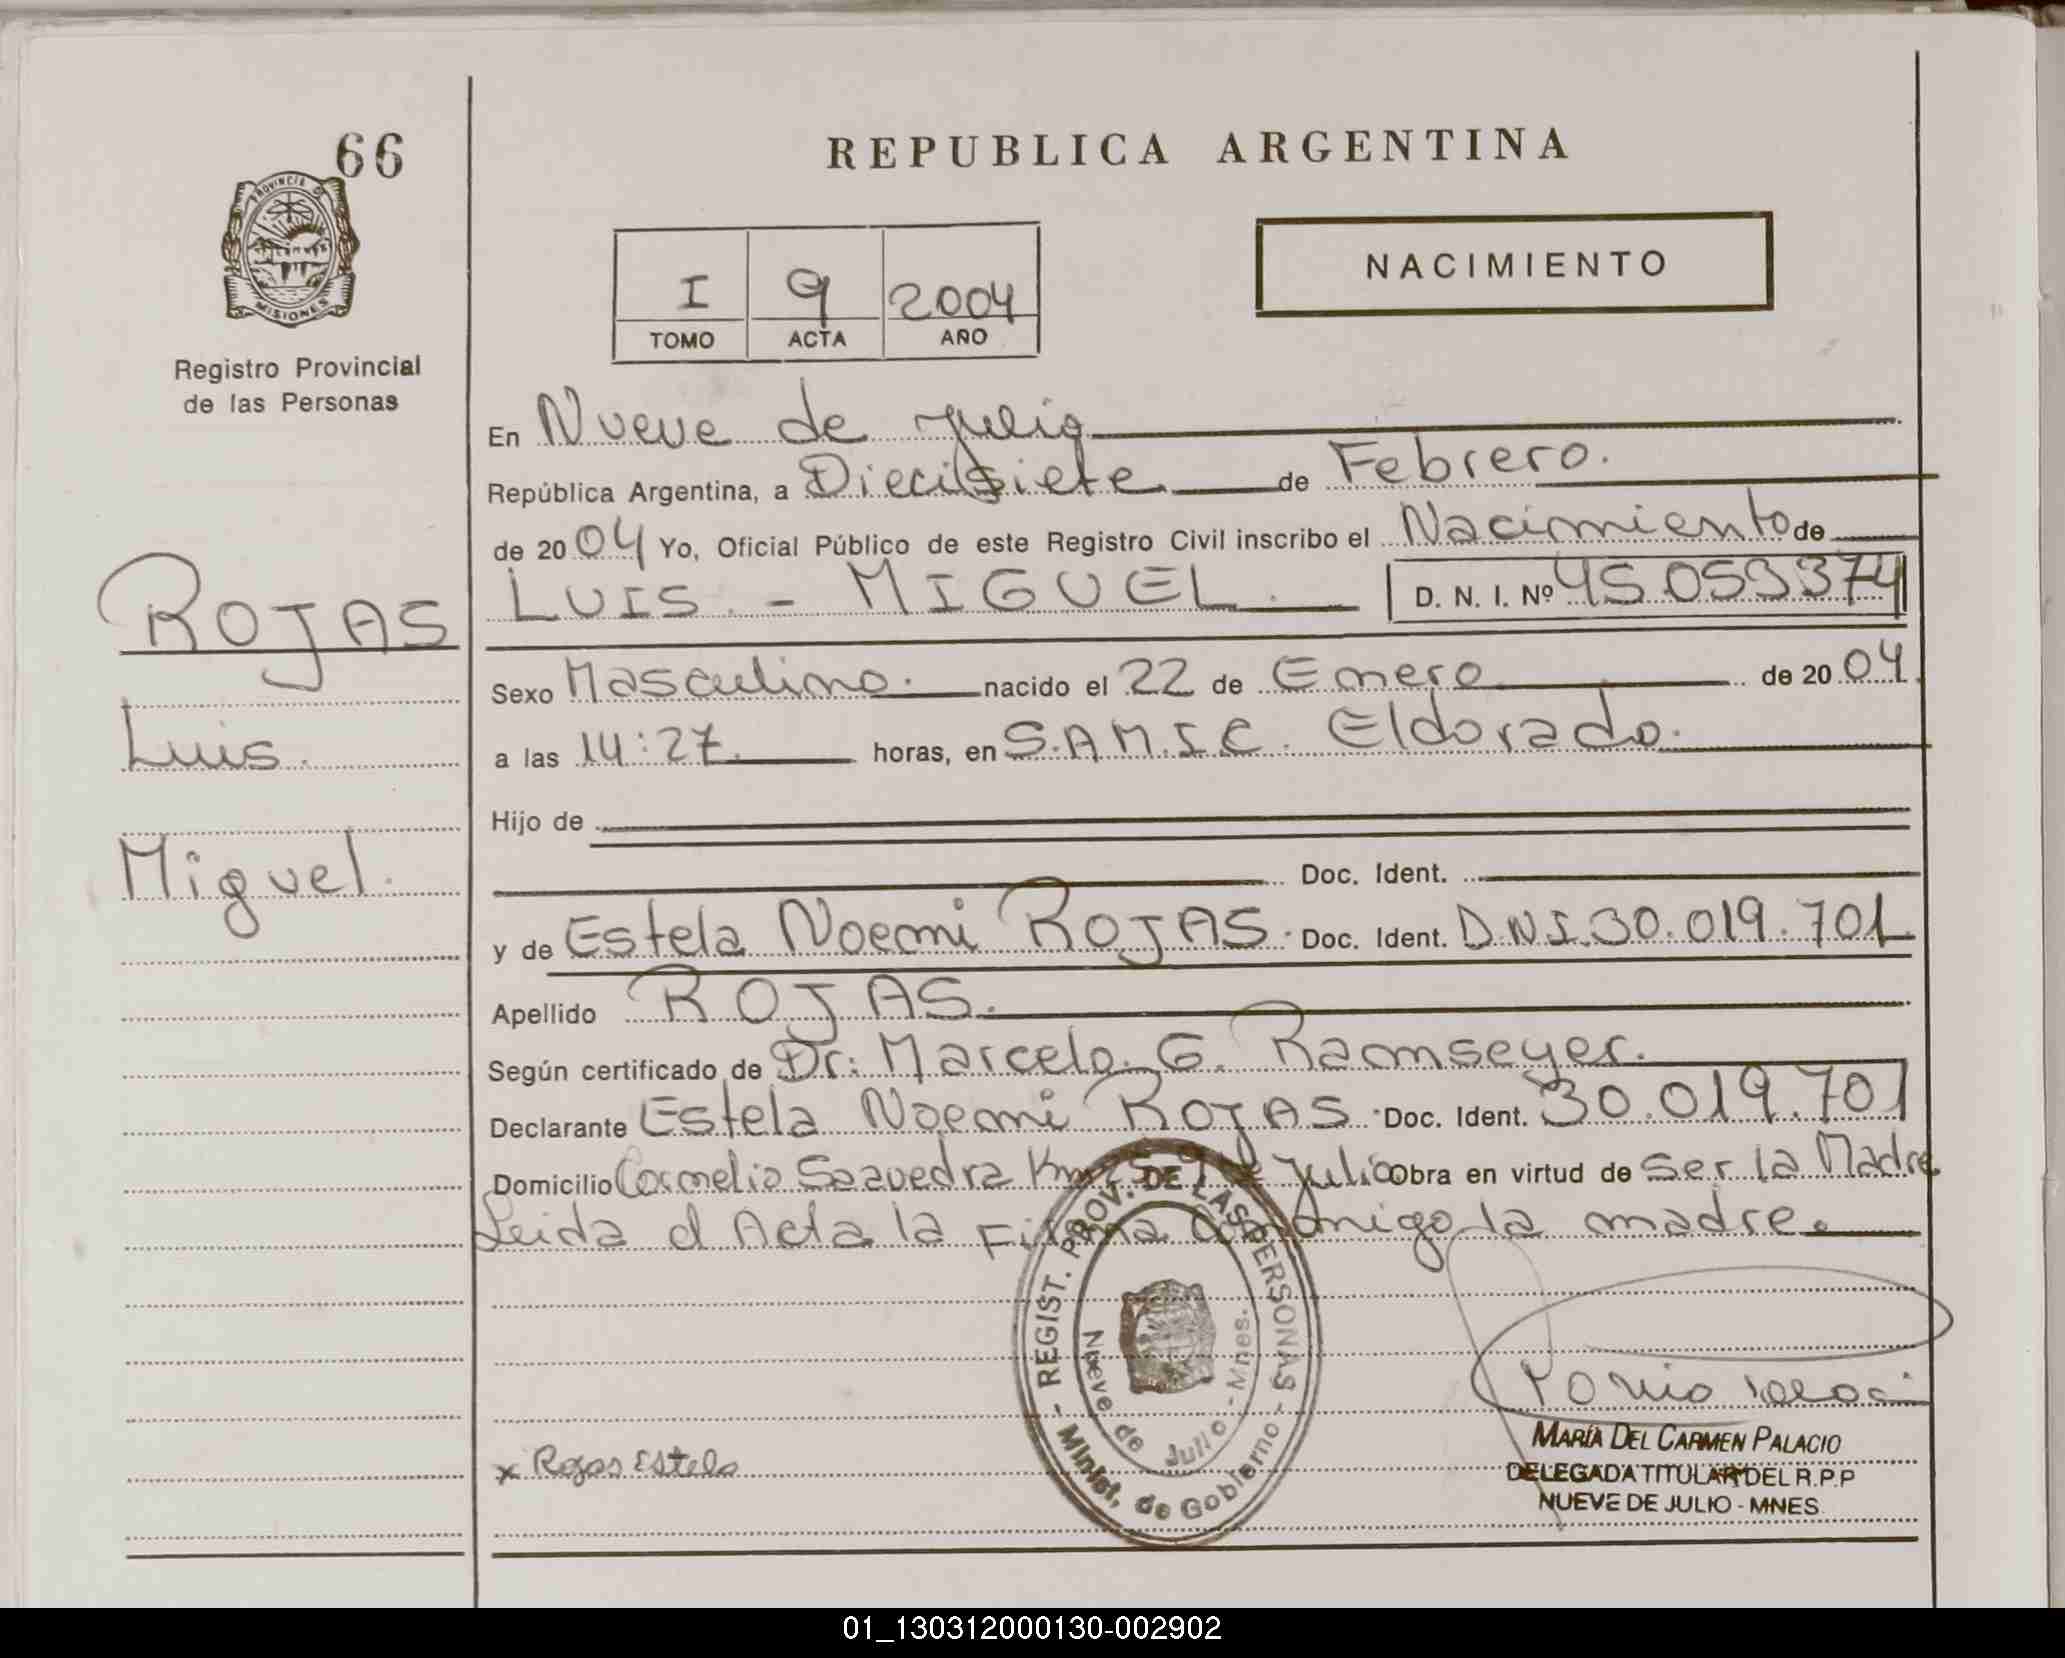 66
PROVINCIA DE
MISIONES
Registro Provincial
de las Personas
REPUBLICA ARGENTINA
NACIMIENTO
I 9 2004
TOMO ACTA AÑO
En Nueve de Julio
República Argentina, a Diecisiete de Febrero.
de 2004 Yo, Oficial Público de este Registro Civil inscribo el Nacimiento de
LUIS - MIGUEL. D. N. I. Nº 45.053374
ROJAS
Luis.
Miguel.
Sexo Masculino. nacido el 22 de Enero de 2004.
a las 14:27. horas, en S.A.M.I.C. Eldorado.
Hijo de
Doc. Ident.
y de Estela Noemi ROJAS. Doc. Ident. D.N.I. 30.019.701
Apellido ROJAS.
Según certificado de Dr: Marcelo. G. Ramseyer.
Declarante Estela Noemi ROJAS. Doc. Ident. 30.019.701
Domicilio Cornelio Saavedra Km 9 de Julio Obra en virtud de Ser la Madre
Leida el Acta la Firma Conmigo la madre.
- REGIST. PROV. DE LAS PERSONAS -
Minist. de Gobierno
Nueve de Julio - Mnes.
x Rojas Estela
MARÍA DEL CARMEN PALACIO
DELEGADA TITULAR DEL R.P.P
NUEVE DE JULIO - MNES.
01_130312000130-002902